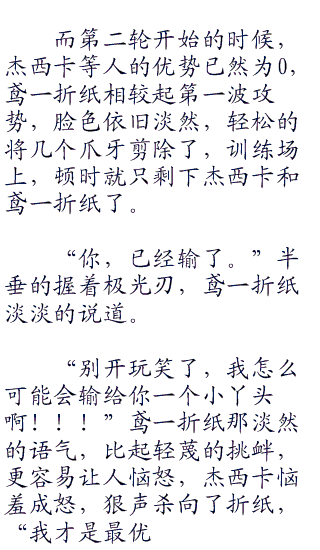 而第二轮开始的时候，
杰西卡等人的优势已然为0，
鸢一折纸相较起第一波攻
势，脸色依旧淡然，轻松的
将几个爪牙剪除了，训练场
上，顿时就只剩下杰西卡和
鸢一折纸了。
“你，已经输了。”半
垂的握着极光刃，鸢一折纸
淡淡的说道。
“别开玩笑了，我怎么
可能会输给你一个小丫头
啊！！！”鸢一折纸那淡然
的语气，比起轻蔑的挑衅，
更容易让人恼怒，杰西卡恼
羞成怒，狠声杀向了折纸，
“我才是最优